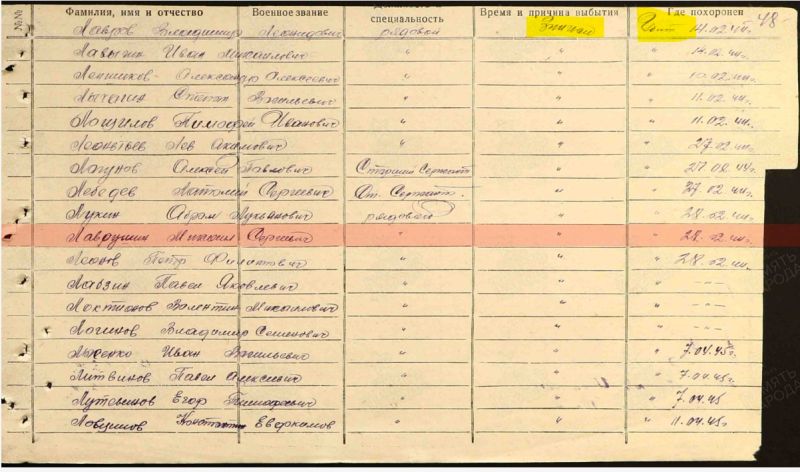 №№ Фамилия, имя и отчество Военное звание специальность Время и причина выбытия Где похоронен 48
Лавров Владимир Леонидович рядовой 14.02.44г.
Лавыгин Иван Михайлович " " " 14.02.44г.
Александр Алексеевич " " " 10.02.44г.
Степан Васильевич " " " 11.02.44г.
Лощилов Тимофей Иванович " " " 11.02.44г.
Леонтьев Лев " " " 27.02.44г.
Лагунов Алексей Павлович Старший Сержант " " 27.02.44г.
Лебедев Анатолий Сергеевич Ст. Сержант. " " 27.02.44г.
Лукин Абрам Лукьянович рядовой " " 28.02.44г.
Лаврушин Михаил Сергеевич " " " 28.02.44г.
Леонов Петр Филиппович " " " 28.02.44г.
Лабзин Павел Яковлевич " " " - - -
Локтионов Валентин Михайлович " " " - - -
Логинов Владимир Семенович " " " - - -
Лысенко Иван Васильевич " " " 7.04.45г.
Литвинов Павел Алексеевич " " " 7.04.45г.
Егор Тимофеевич " " " 7.04.45
" " " 11.04.45г.